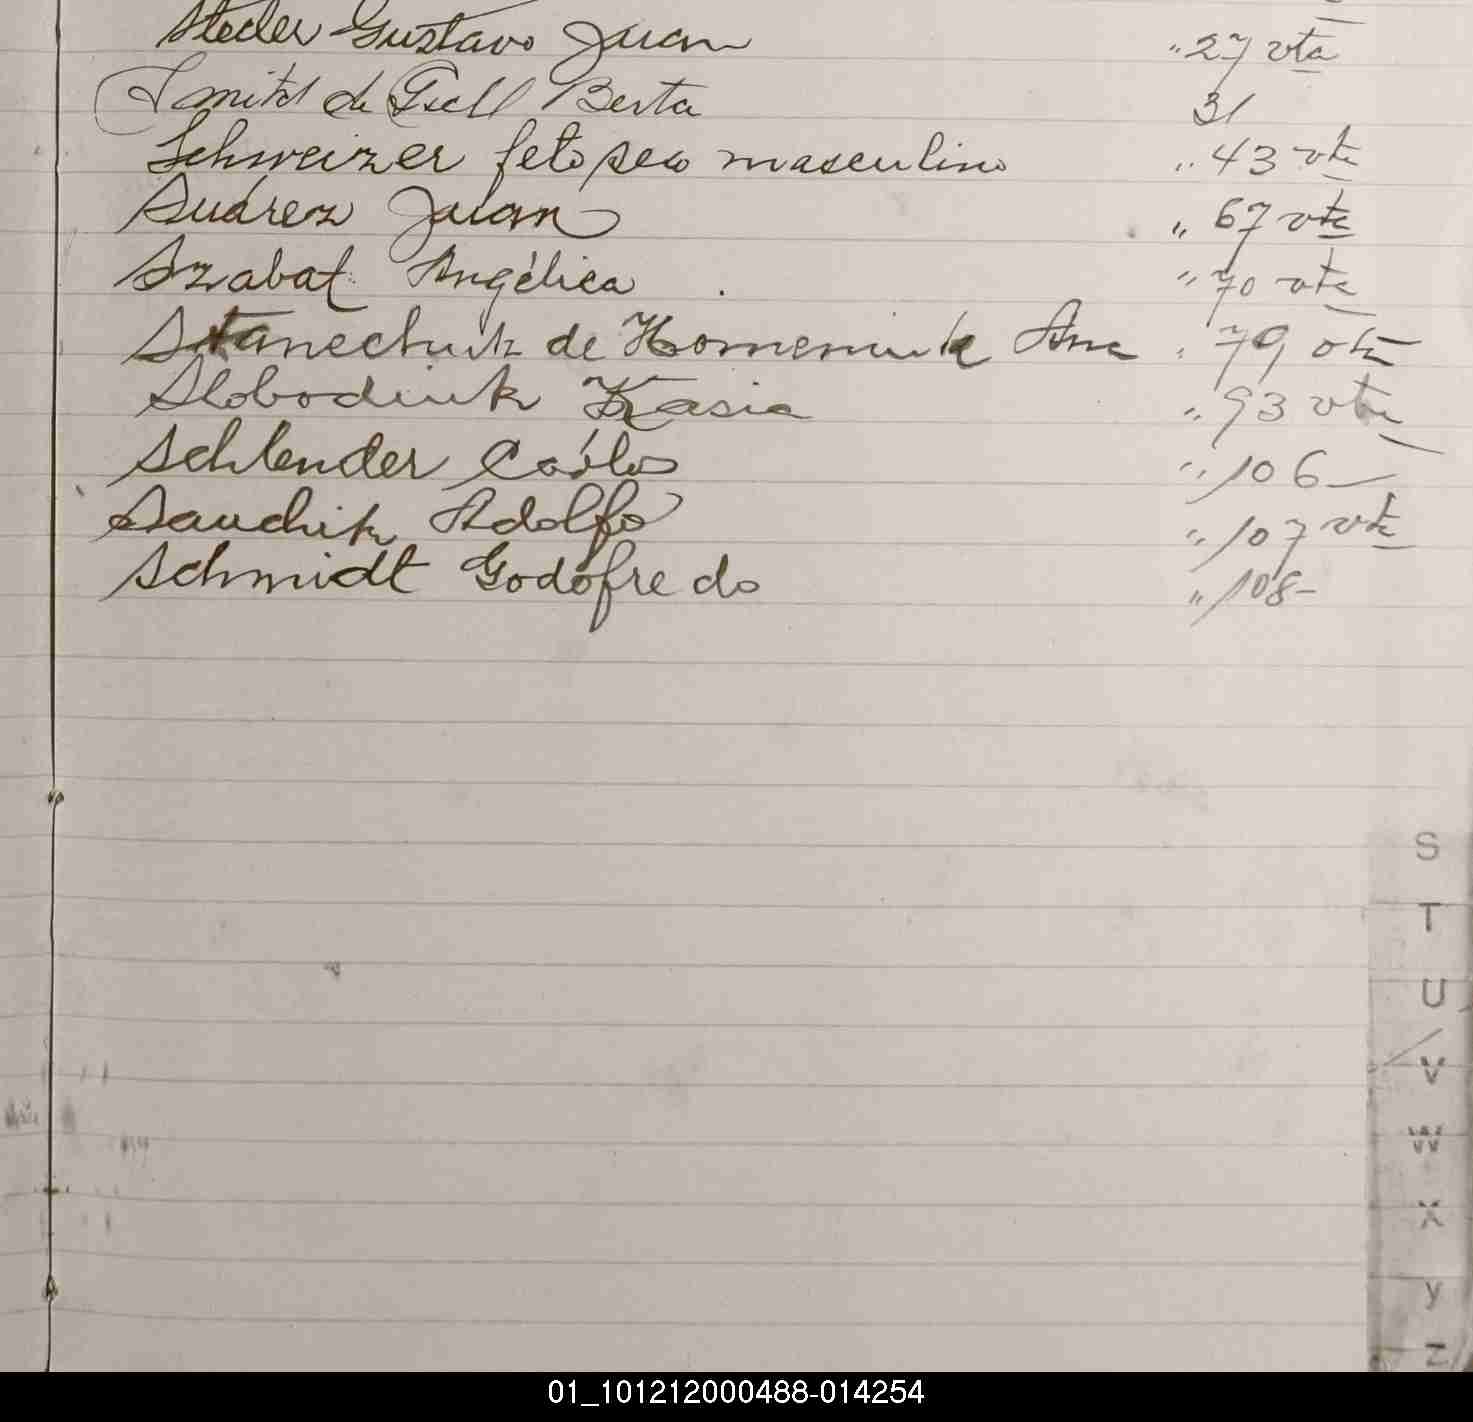 Steder Gustavo Juan " 27 vta
Smitd de Gsell Berta 31
Schweizer feto sexo masculino " 43 vta
Suárez Juan " 67 vta
Szabat Angélica " 70 vta
Stanechuk de Homeniuk Ana " 79 vta
Slobodiuk Kasia " 93 vta
Schlender Carlos " 106
Sauchik Adolfo " 107 vta
Schmidt Godofredo " 108
S
T
U
V
W
X
Y
Z
01_101212000488-014254